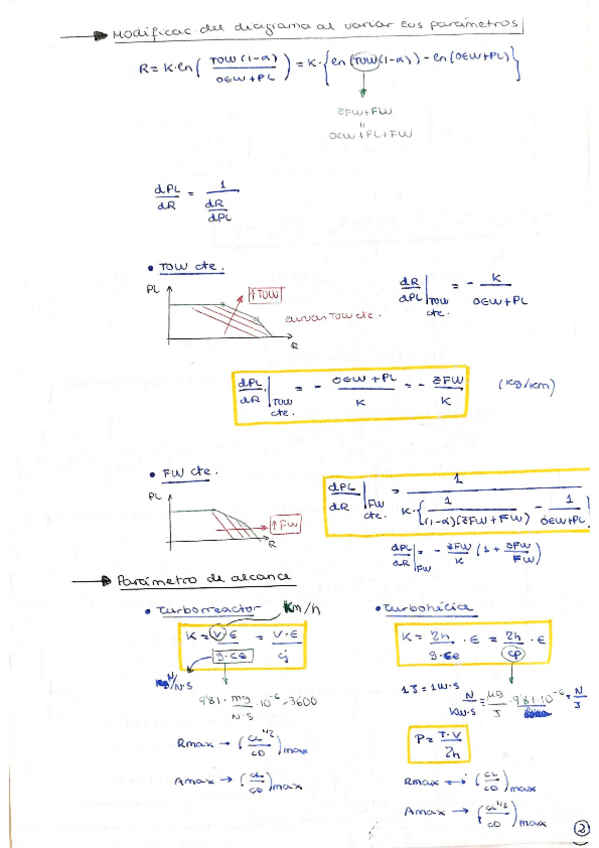 Modificac del diagrama al variar los parámetros
R = K·ln( TOW(1-α) / OEW+PL ) = K·{ ln(TOW(1-α)) - ln(OEW+PL) }
ZFW+FW
=
OEW+PL+FW
dPL/dR = 1 / (dR/dPL)
• TOW cte.
PL
↑TOW
curvas TOW cte.
R
dR/dPL | TOW cte. = - K / OEW+PL
dPL/dR | TOW cte. = - OEW+PL / K = - ZFW / K (kg/km)
• FW cte.
PL
↑FW
R
dPL/dR | FW cte. = 1 / K·{ 1 / (1-α)(ZFW+FW) - 1 / OEW+PL }
dPL/dR | FW = - ZFW/K (1 + ZFW/FW)
Parámetro de alcance
• Turborreactor
km/h
K = V·E / g·cE = V·E / cj
N/N·S
9'81 · mg/N·S · 10⁻⁶ · 3600
Rmax → (CL^1/2 / CD)max
Amax → (CL / CD)max
• Turbohélice
K = ηh / g·ce · E = ηh / cp · E
1J = 1W·S
N / KW·S = μg/J · 9'81·10⁻⁶ = N/J
P = T·V / ηh
Rmax → (CL / CD)max
Amax → (CL^1/2 / CD)max
2